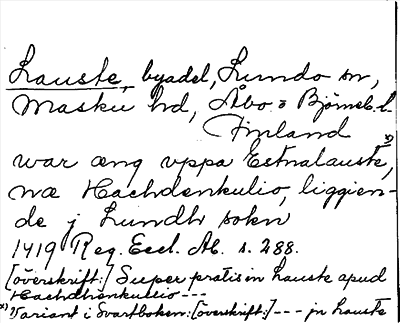 Lauste, byadel, Lundo sn,
Masku hd, Åbo o Björneb. l.
Finland
war æng vppa Estnalauste, x)
næ Hachdenkulio, liggien-
de j Lundh sokn
1419 Reg. Eccl. Ab. s. 288.
[överskrift:] Super pratis in Lauste apud
Hachdhenkullio ---
x) Variant i Svartboken: [överskrift:] --- jn Lauste